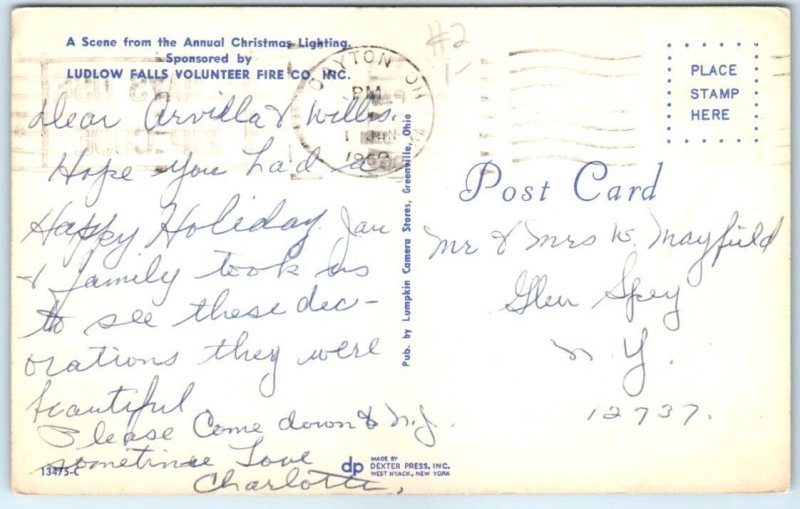 A Scene from the Annual Christmas Lighting.
Sponsored by
LUDLOW FALLS VOLUNTEER FIRE CO. INC.
#2
1-
DAYTON OH
PM
1 JAN
PLACE
STAMP
HERE
Dear Arvilla & Willis.
Hope you had a
Happy Holiday. Jan
& family took us
to see these dec-
orations they were
beautiful
Please Come down to N.J.
sometime Love
Charlotte,
Post Card
Mr & Mrs W. Mayfield
Glen Spey
N.Y.
12737.
Pub. by Lumpkin Camera Stores, Greenville, Ohio
13475-C
dp
MADE BY
DEXTER PRESS, INC.
WEST NYACK, NEW YORK